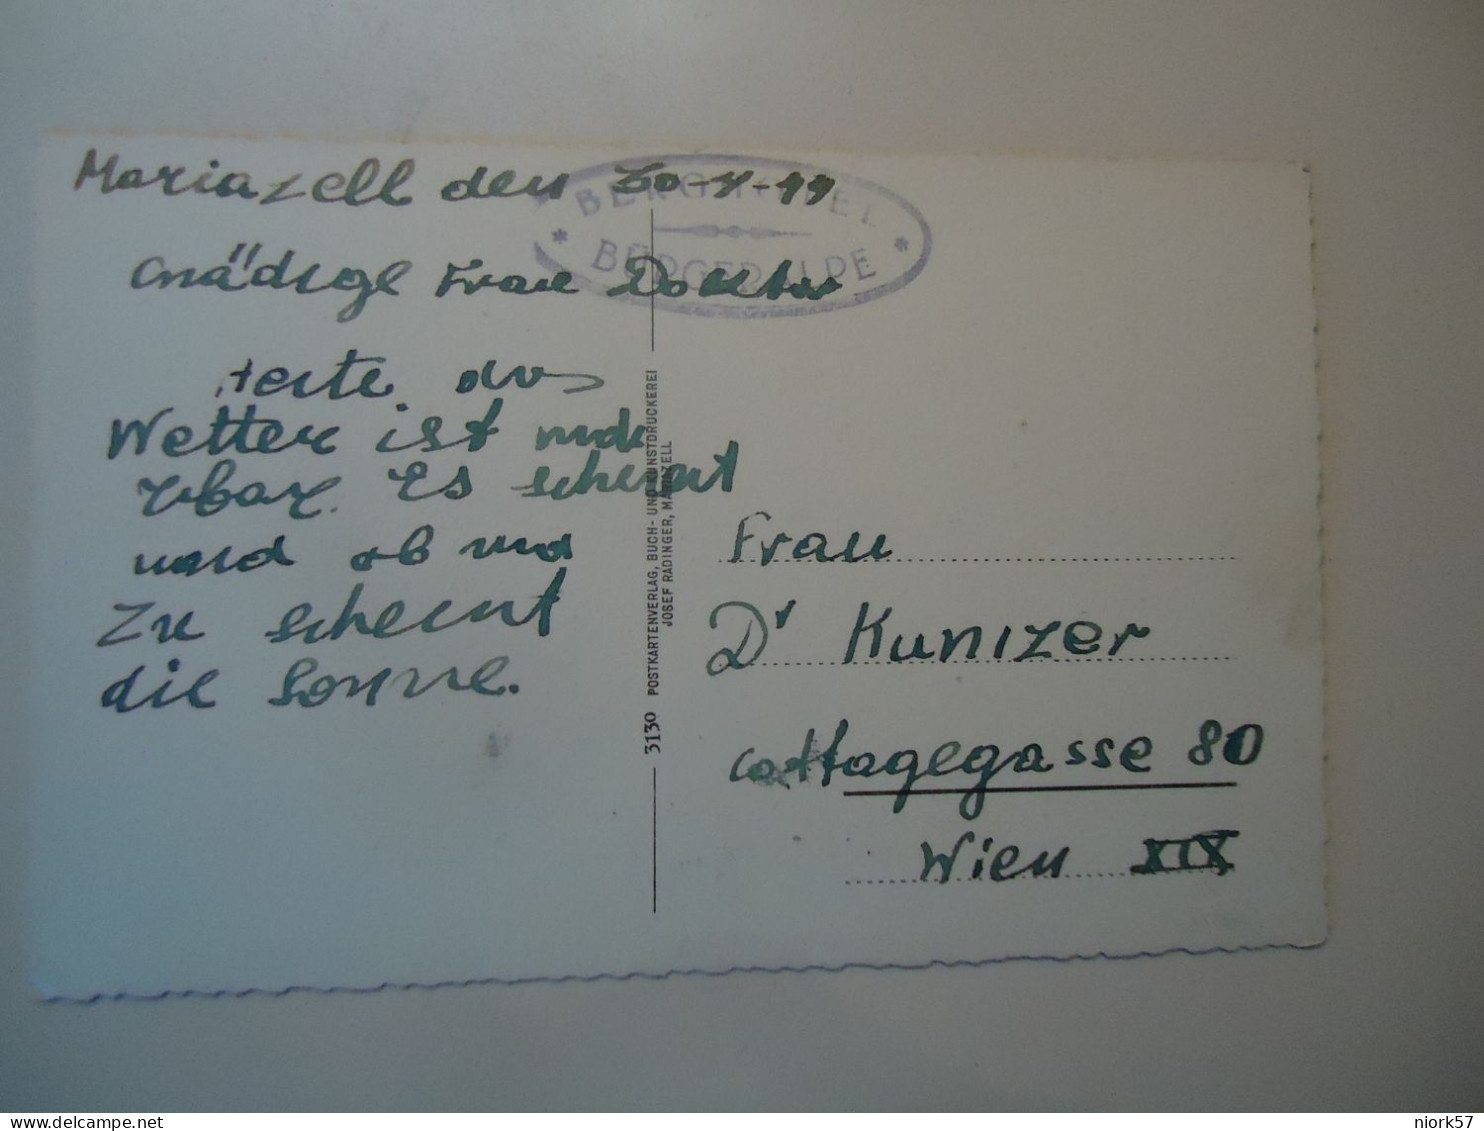 Mariazell den 30-X-49
BERGHOTEL
BÜRGERALPE
Gnädige Frau Doktor
Heite das
Wetter ist
Es scheint
ob und
Zu scheint
die Sonne.
3130 POSTKARTENVERLAG, BUCH- UND KUNSTDRUCKEREI
JOSEF RADINGER, MARIAZELL
Frau
Dr Kunizer
Cottagegasse 80
Wien XIX
niork57